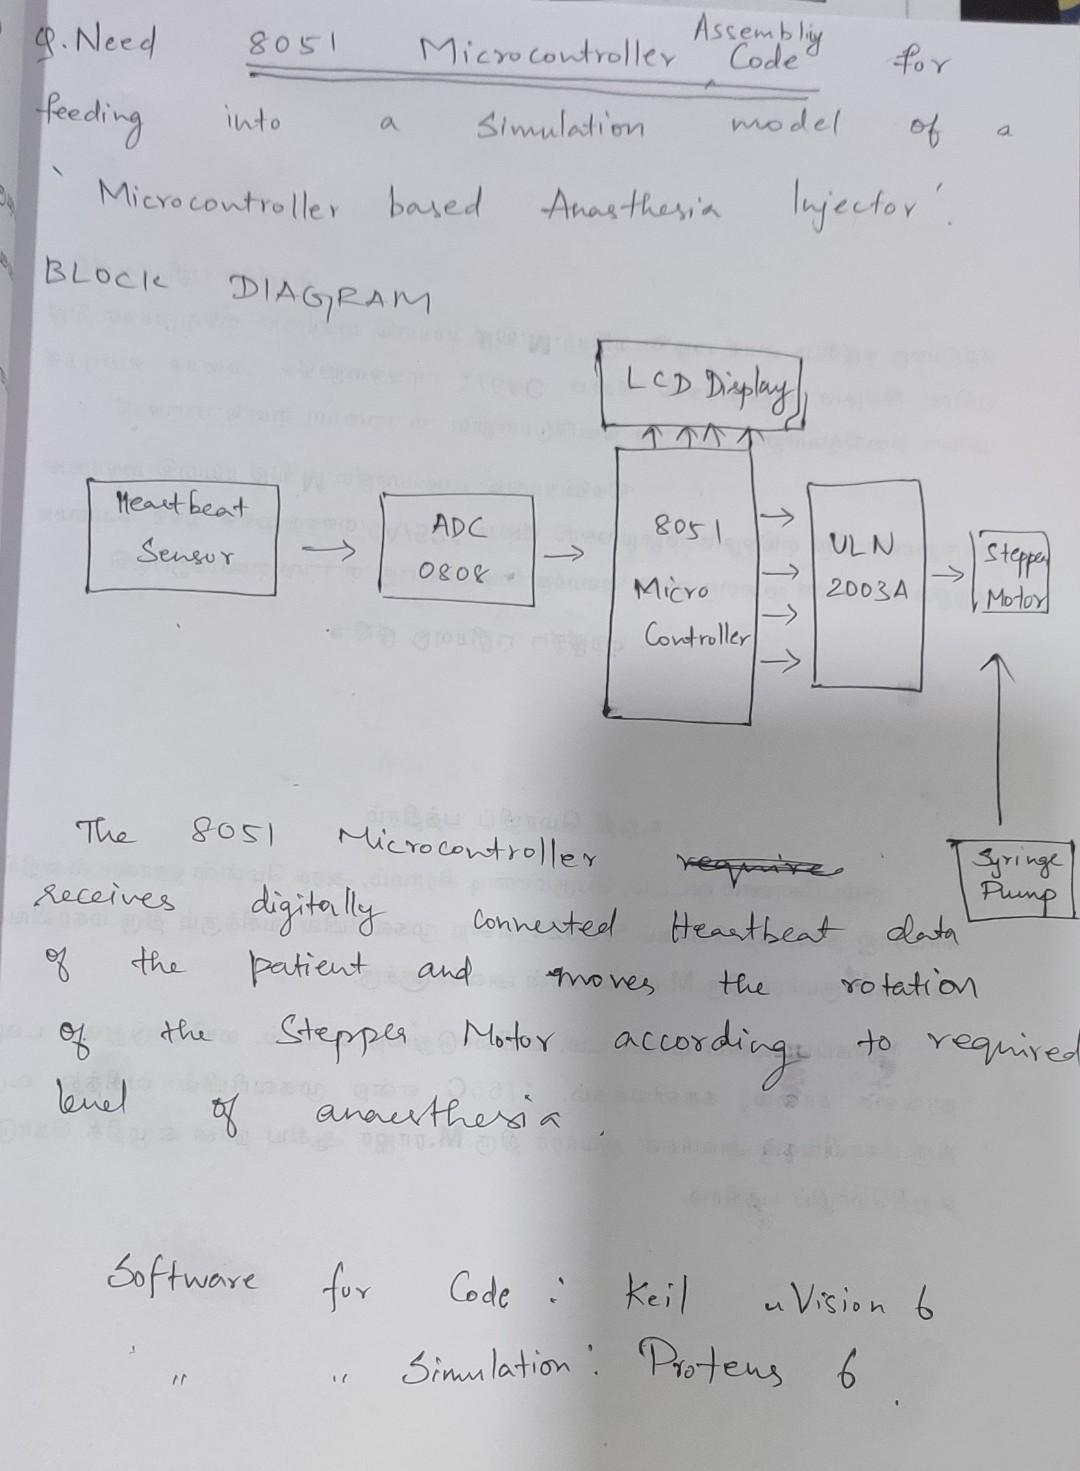 Q. Need 8051 Microcontroller Assembliy Code for
feeding into a Simulation model of a
'Microcontroller based Anasthesia Injector'.
BLOCK DIAGRAM
LCD Display
Heartbeat
Sensor
ADC
0808
8051
Micro
Controller
ULN
2003A
Stepper
Motor
Syringe
Pump
The 8051 Microcontroller require
receives digitally connerted Heartbeat data
of the patient and moves the rotation
of the Stepper Motor according to required
level of anaesthesia.
Software for Code : Keil uVision 6
" " Simulation : Proteus 6.